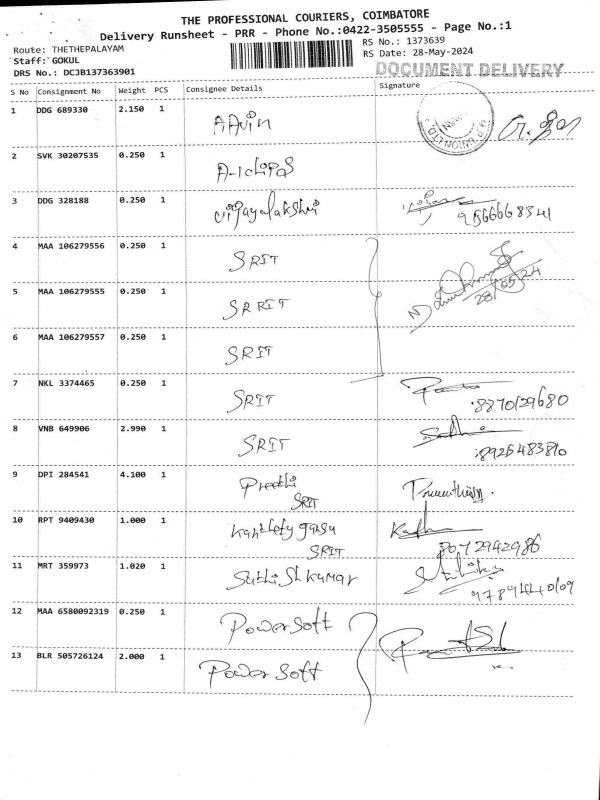 THE PROFESSIONAL COURIERS, COIMBATORE
Delivery Runsheet - PRR - Phone No.:0422-3505555 - Page No.:1
Route: THETHEPALAYAM
RS No.: 1373639
Staff: GOKUL
RS Date: 28-May-2024
DRS No.: DCJB137363901
DOCUMENT DELIVERY
S No Consignment No Weight PCS Consignee Details Signature
1 DDG 689330 2.150 1 AAvin
2 SVK 30207535 0.250 1
3 DDG 328188 0.250 1 vijayalakshmi 9566668341
4 MAA 106279556 0.250 1 SRIT
28/05/24
5 MAA 106279555 0.250 1 SRRIT
6 MAA 106279557 0.250 1 SRIT
7 NKL 3374465 0.250 1 SRIT 8870129680
8 VNB 649906 2.990 1 SRIT
9 DPI 284541 4.100 1 Preethi
SRIT
10 RPT 9409430 1.000 1
SRIT 8072942986
11 MRT 359973 1.020 1 Suthish kumar
12 MAA 6580092319 0.250 1 Power soft
13 BLR 505726124 2.000 1 Power soft